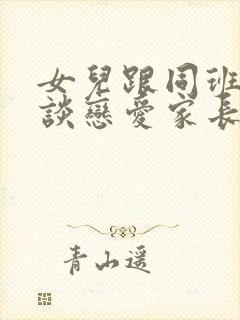 女兒跟同班
談戀愛家長
青山遥